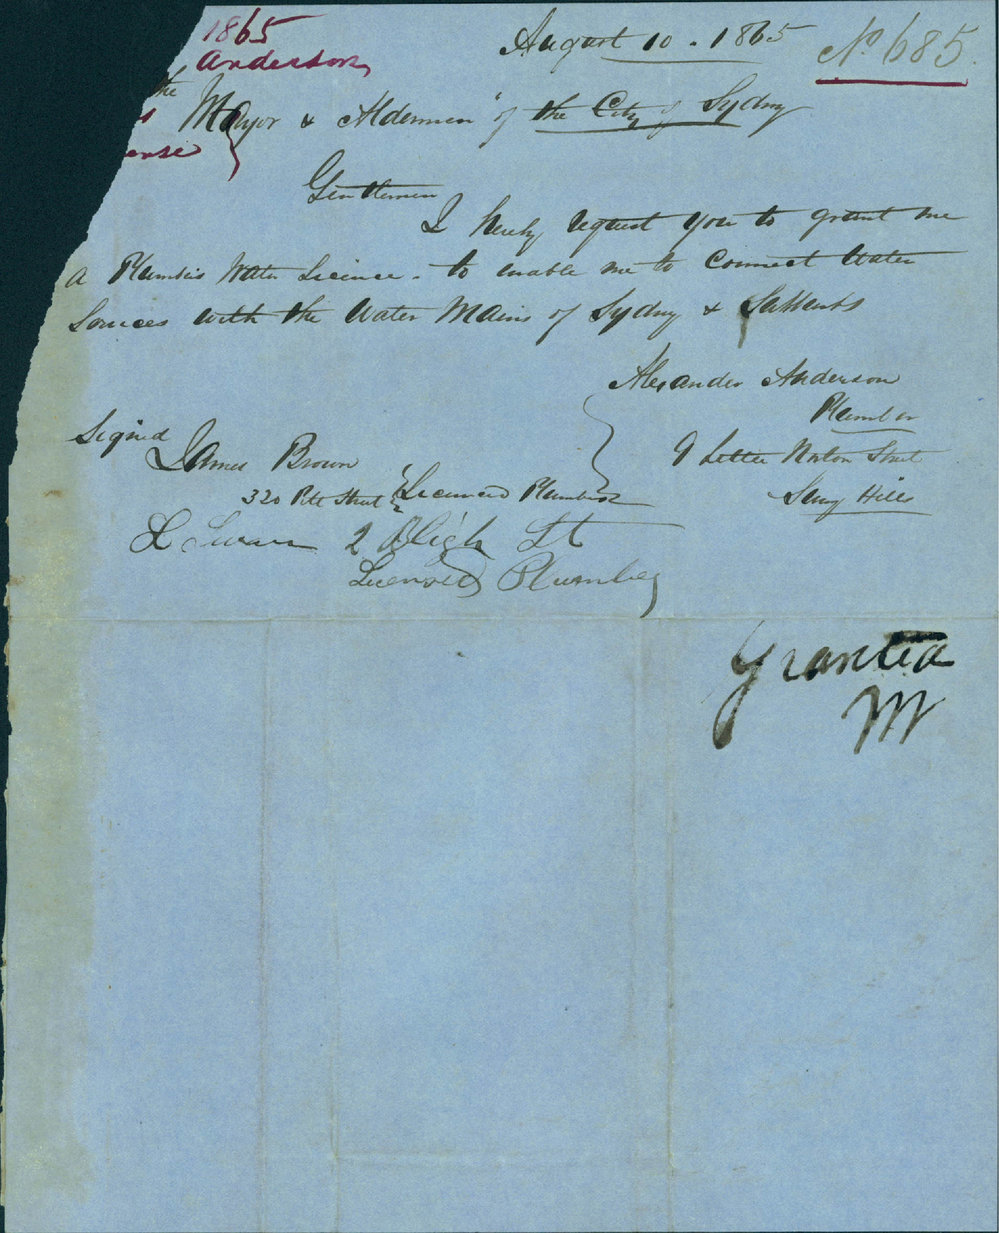 1865
Anderson
August 10 - 1865
No. 685
the
Mayor & Aldermen of the City of Sydney
ense
Gentlemen
I hereby request you to grant me
a Plumbers Water Licence - to enable me to Connect Water
Services with the Water Mains of Sydney &
Alexander Anderson
Plumber
9 Little Norton Street
Surry Hills
Signed
James Brown
320 Pitt Street Licenced Plumber
2 Bligh St
Licensed Plumber
Granted
M